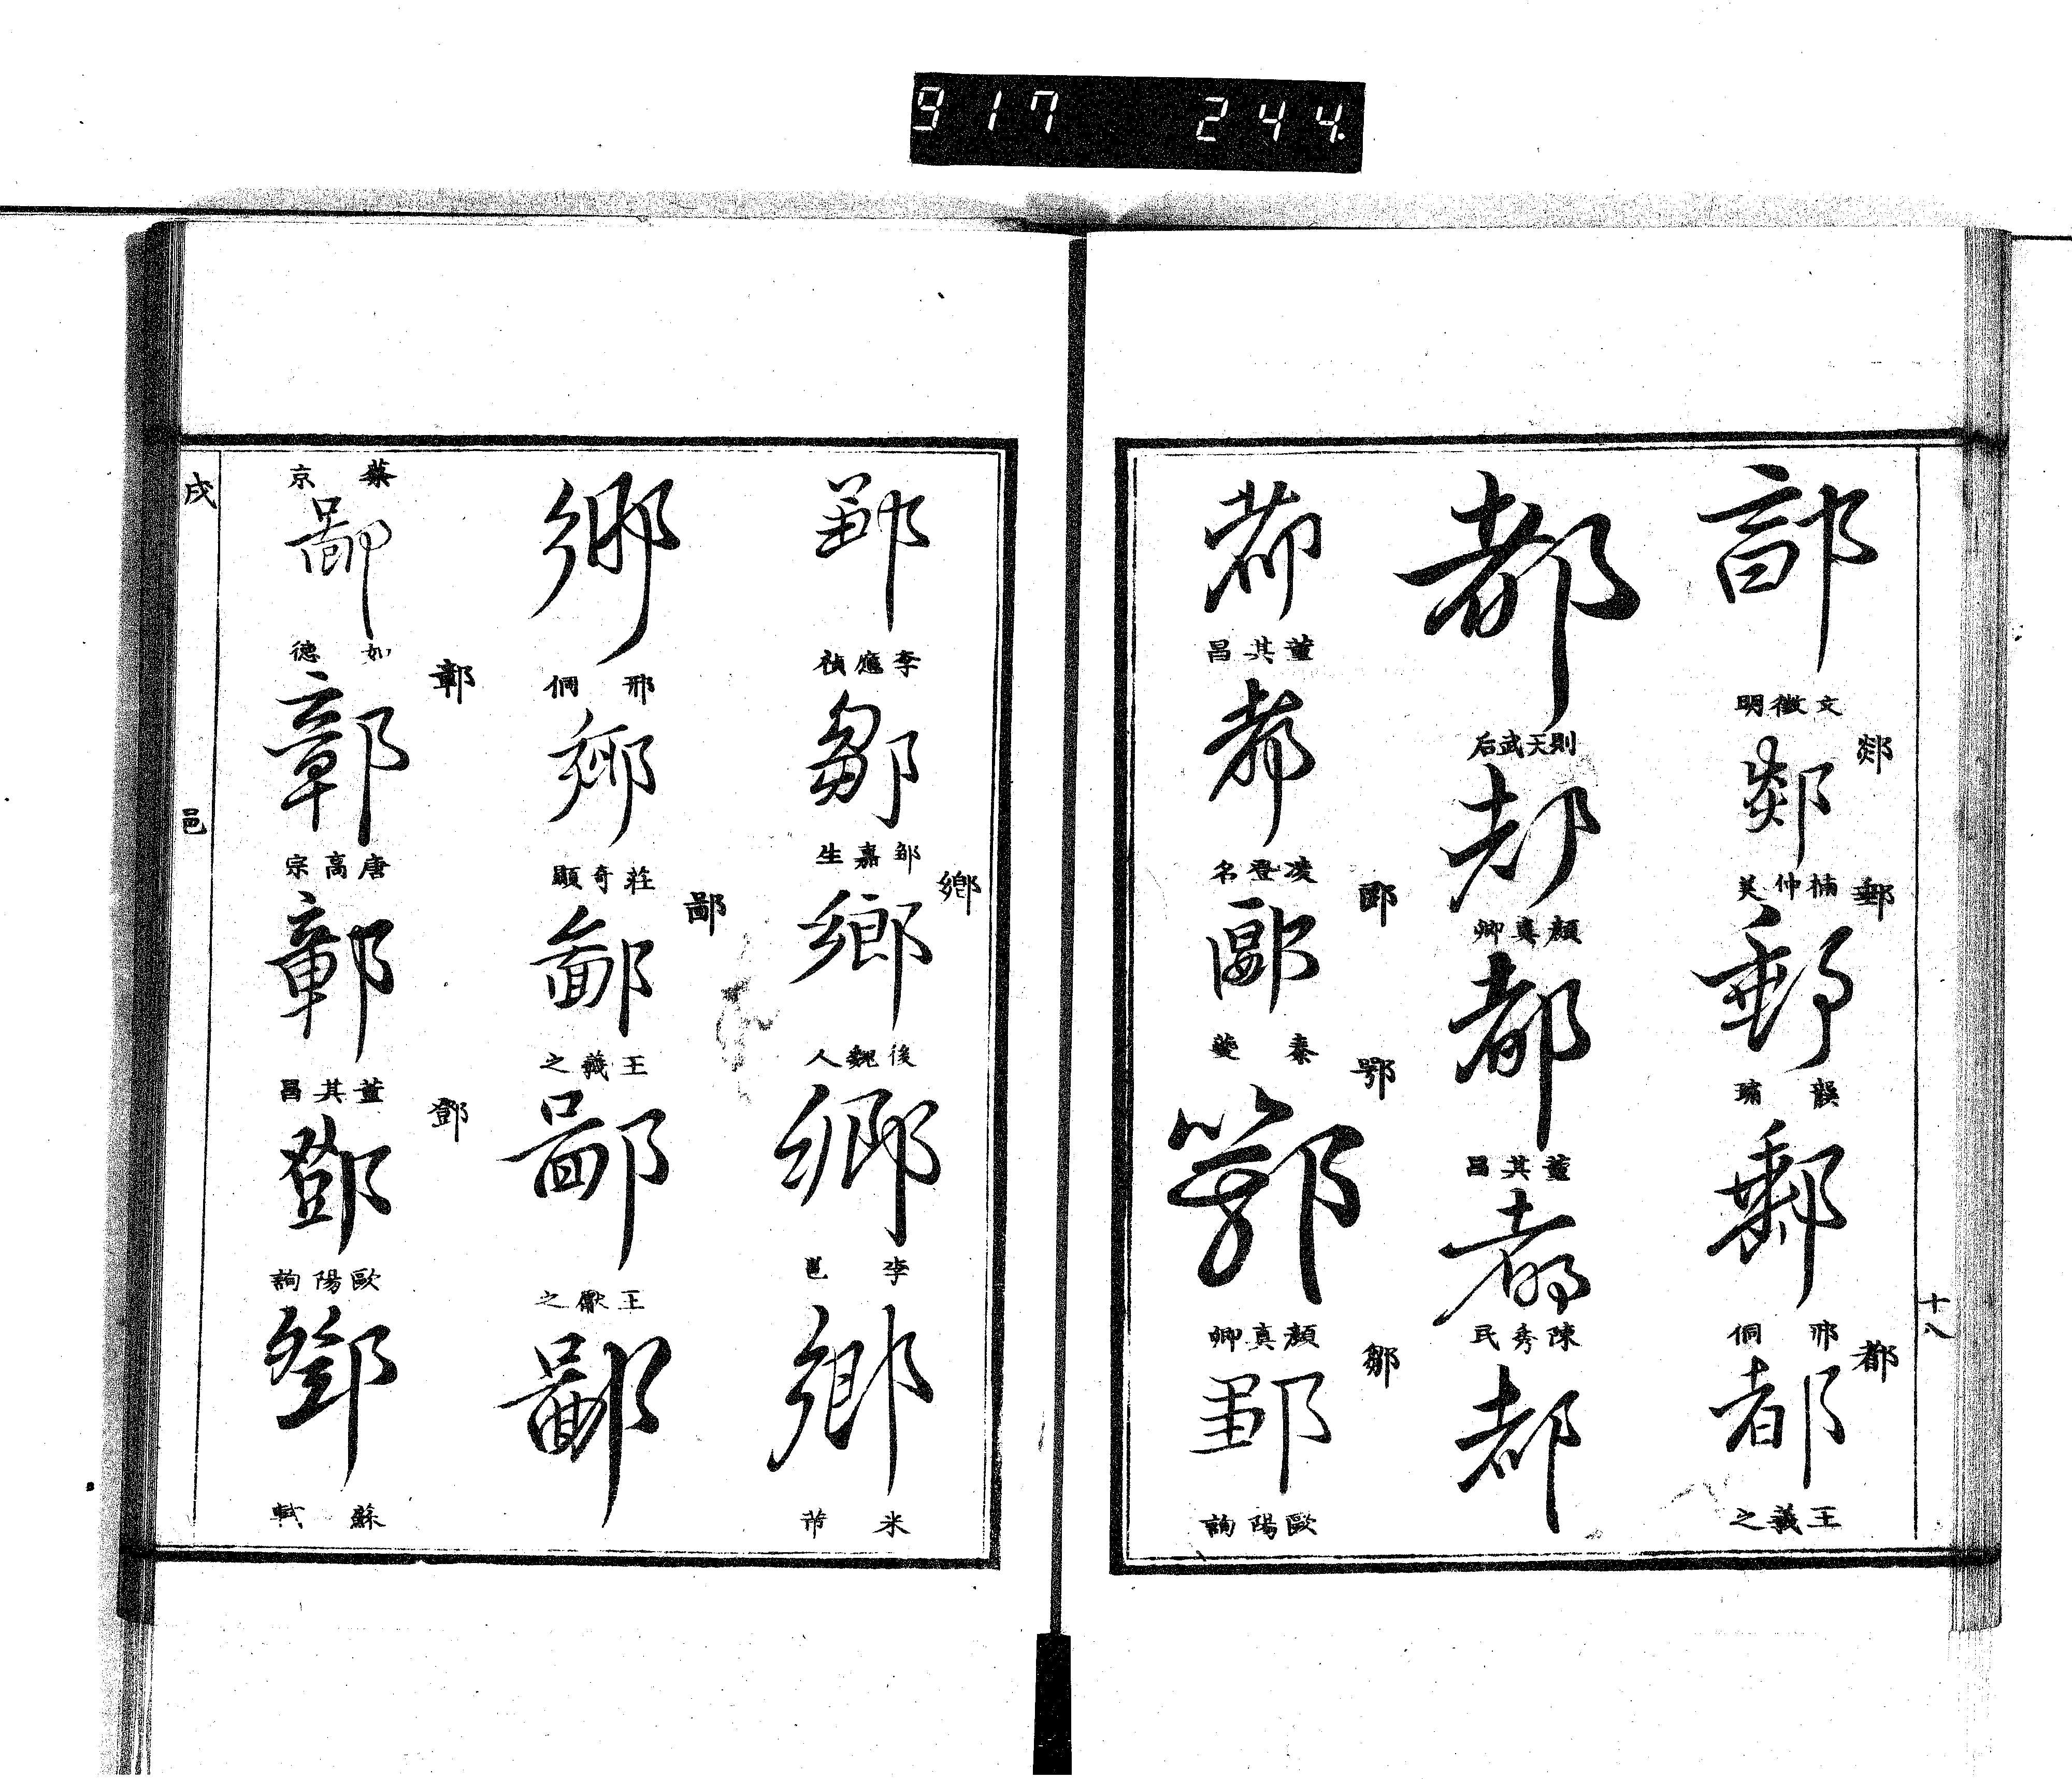 917 244
十八
部
文徵明
郯
郯
楠仲美
郵
郵
龔璛
郵
邢侗
都
都
王羲之
都
則天武后
都
顏真卿
都
董其昌
都
陳秀民
都
都
董其昌
都
凌登名
郾
郾
秦夔
鄂
鄂
顏真卿
鄒
鄒
歐陽詢
鄒
李應禎
鄒
邹嘉生
鄉
鄉
後魏人
鄉
李邕
鄉
米芾
鄉
邢侗
鄉
莊奇顯
鄙
鄙
王羲之
鄙
王獻之
鄙
蔡京
鄙
如德
鄣
鄣
唐高宗
鄣
董其昌
鄧
鄧
歐陽詢
鄧
蘇軾
戌
邑